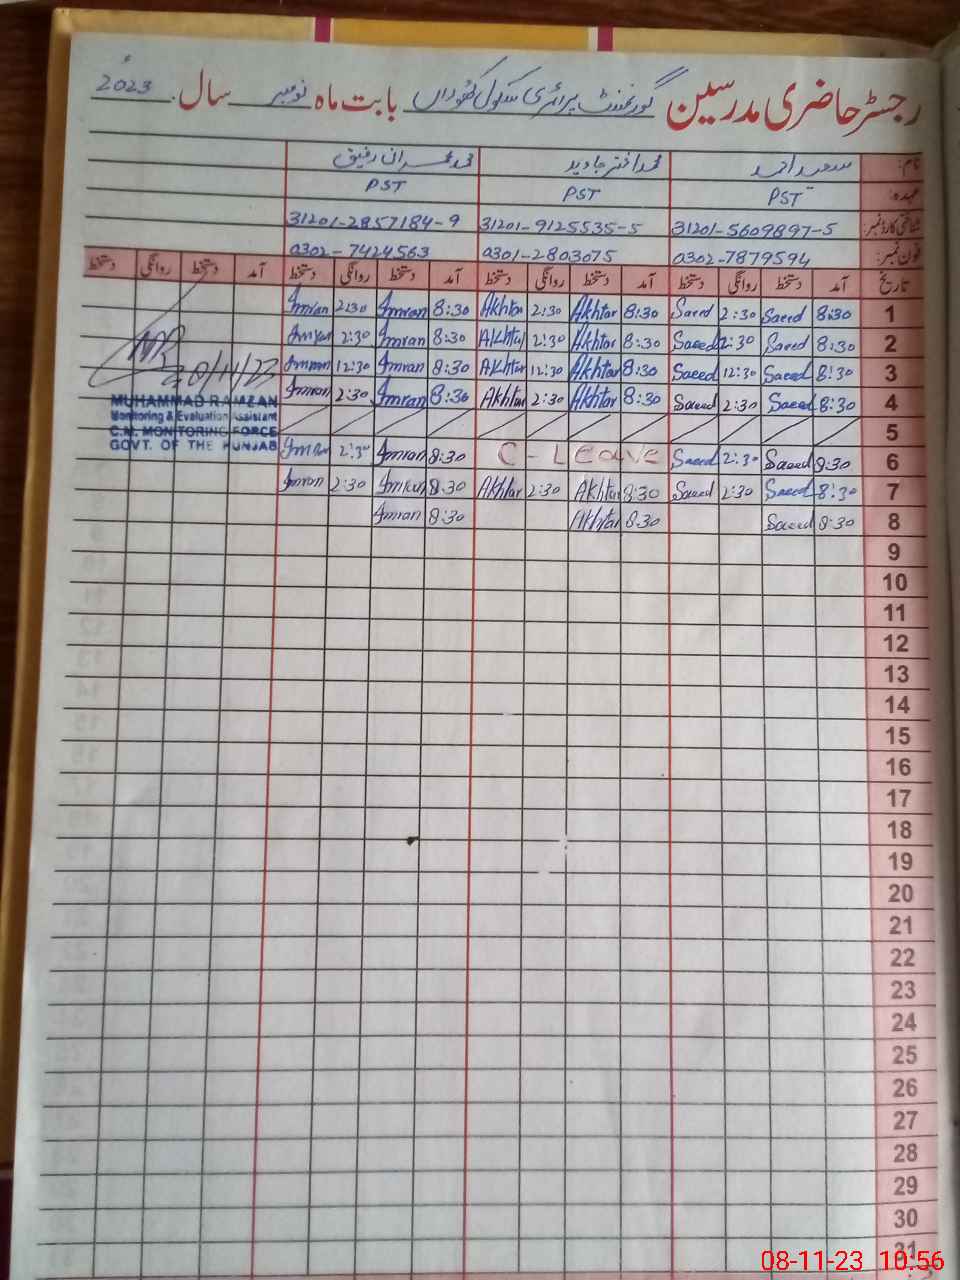 رجسٹر حاضری مدرسین گورنمنٹ پرائمری سکول بابت ماہ نومبر سال 2023ء
نام: سعید احمد محمد اختر جاوید محمد عمران رفیق
عہدہ: PST PST PST
شناختی کارڈ نمبر: 31201-5609897-5 31201-9125535-5 31201-2857184-9
فون نمبر: 0302-7879594 0301-2803075 0302-7424563
تاریخ آمد دستخط روانگی دستخط آمد دستخط روانگی دستخط آمد دستخط روانگی دستخط آمد دستخط روانگی دستخط
1 8:30 Saeed 2:30 Saeed 8:30 Akhtar 2:30 Akhtar 8:30 Imran 2:30 Imran
2 8:30 Saeed 2:30 Saeed 8:30 Akhtar 2:30 Akhtar 8:30 Imran 2:30 Imran
3 8:30 Saeed 12:30 Saeed 8:30 Akhtar 12:30 Akhtar 8:30 Imran 12:30 Imran
4 8:30 Saeed 2:30 Saeed 8:30 Akhtar 2:30 Akhtar 8:30 Imran 2:30 Imran
5
6 8:30 Saeed 2:30 Saeed C-Leave 8:30 Imran 2:30 Imran
7 8:30 Saeed 2:30 Saeed 8:30 Akhtar 2:30 Akhtar 8:30 Imran 2:30 Imran
8 8:30 Saeed 8:30 Akhtar 8:30 Imran
MUHAMMAD RAMZAN
Monitoring & Evaluation Assistant
C.M. MONITORING FORCE
GOVT. OF THE PUNJAB
9
10
11
12
13
14
15
16
17
18
19
20
21
22
23
24
25
26
27
28
29
30
31
08-11-23 10:56